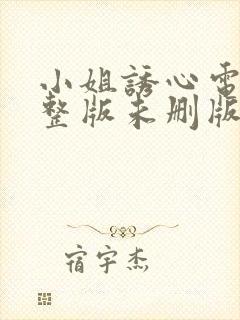 小姐誘心電
整版未删版
宿宇杰